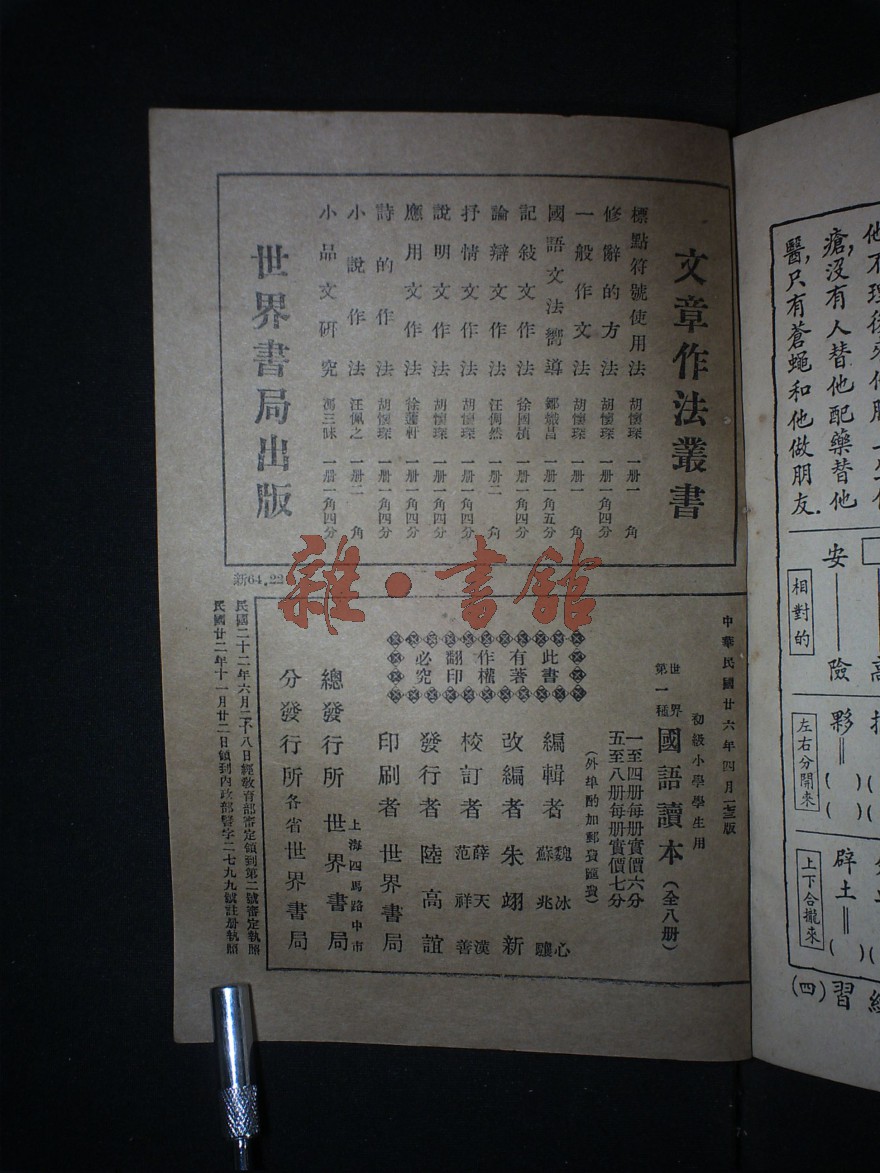 文章作法叢書
標點符號使用法 胡懷琛 一册一角
修辭的方法 胡懷琛 一册一角四分
一般作文法 胡懷琛 一册一角
國語文法嚮導 一册一角五分
記敍文作法 徐國楨 一册一角四分
論辯文作法 汪倜然 一册二角
抒情文作法 胡懷琛 一册一角四分
說明文作法 胡懷琛 一册一角四分
應用文作法 徐蘧軒 一册一角四分
詩的作法 胡懷琛 一册一角四分
小說作法 汪佩之 一册二角
小品文研究 馮三昧 一册一角四分
世界書局出版
新64.22
雜·書館
中華民國廿六年四月版
初級小學學生用
世界第一種 國語讀本(全八册)
一至四册每册實價六分
五至八册每册實價七分
(外埠酌加郵費匯費)
此書有著作權翻印必究
編輯者 魏冰心 蘇兆驤
改編者 朱翊新
校訂者 薛天漢 范祥善
發行者 陸高誼
印刷者 世界書局
總發行所 上海四馬路中市 世界書局
分發行所 各省世界書局
民國二十二年六月二十八日經敎育部審定領到第二號審定執照
民國廿二年十一月廿二日領到內政部警字二七九九號註册執照
瘡,沒有人替他配藥替他
醫,只有蒼蠅和他做朋友.
安——險
相對的
夥=( )( )
左右分開來
辟土=( )
上下合攏來
習(四)